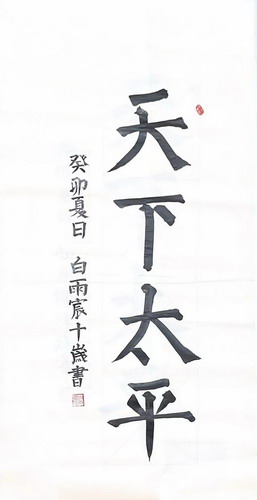 天下太平
癸卯夏日 白雨宸十歲書